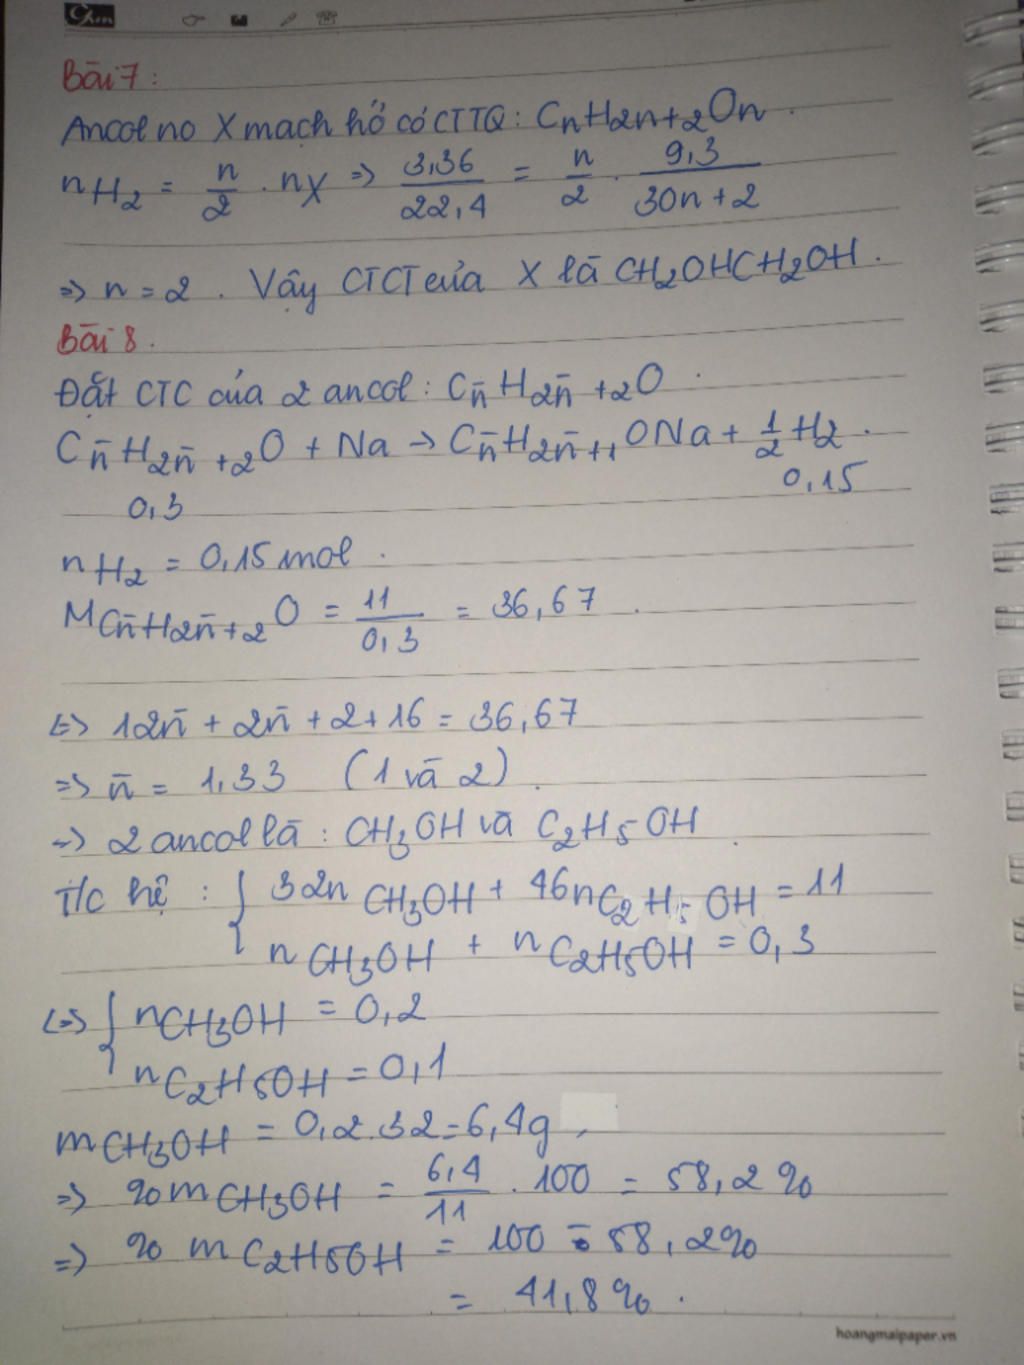 Bài 7 :
Ancol no X mạch hở có CTTQ : CnH2n+2On .
nH2 = n/2 . nX => 3,36/22,4 = n/2 . 9,3/30n+2
=> n = 2 . Vậy CTCT của X là CH2OHCH2OH .
Bài 8 .
Đặt CTC của 2 ancol : Cn̄H2n̄+2O .
Cn̄H2n̄+2O + Na → Cn̄H2n̄+1ONa + 1/2 H2 .
0,3 0,15
nH2 = 0,15 mol .
MCn̄H2n̄+2O = 11/0,3 = 36,67 .
<=> 12n̄ + 2n̄ + 2 + 16 = 36,67
=> n̄ = 1,33 (1 và 2) .
=> 2 ancol là : CH3OH và C2H5OH .
T/c hệ : { 32nCH3OH + 46nC2H5OH = 11
nCH3OH + nC2H5OH = 0,3
<=> { nCH3OH = 0,2
nC2H5OH = 0,1
mCH3OH = 0,2.32 = 6,4g ,
=> %mCH3OH = 6,4/11 . 100 = 58,2%
=> % mC2H5OH = 100 - 58,2%
= 41,8% .
hoangmaipaper.vn